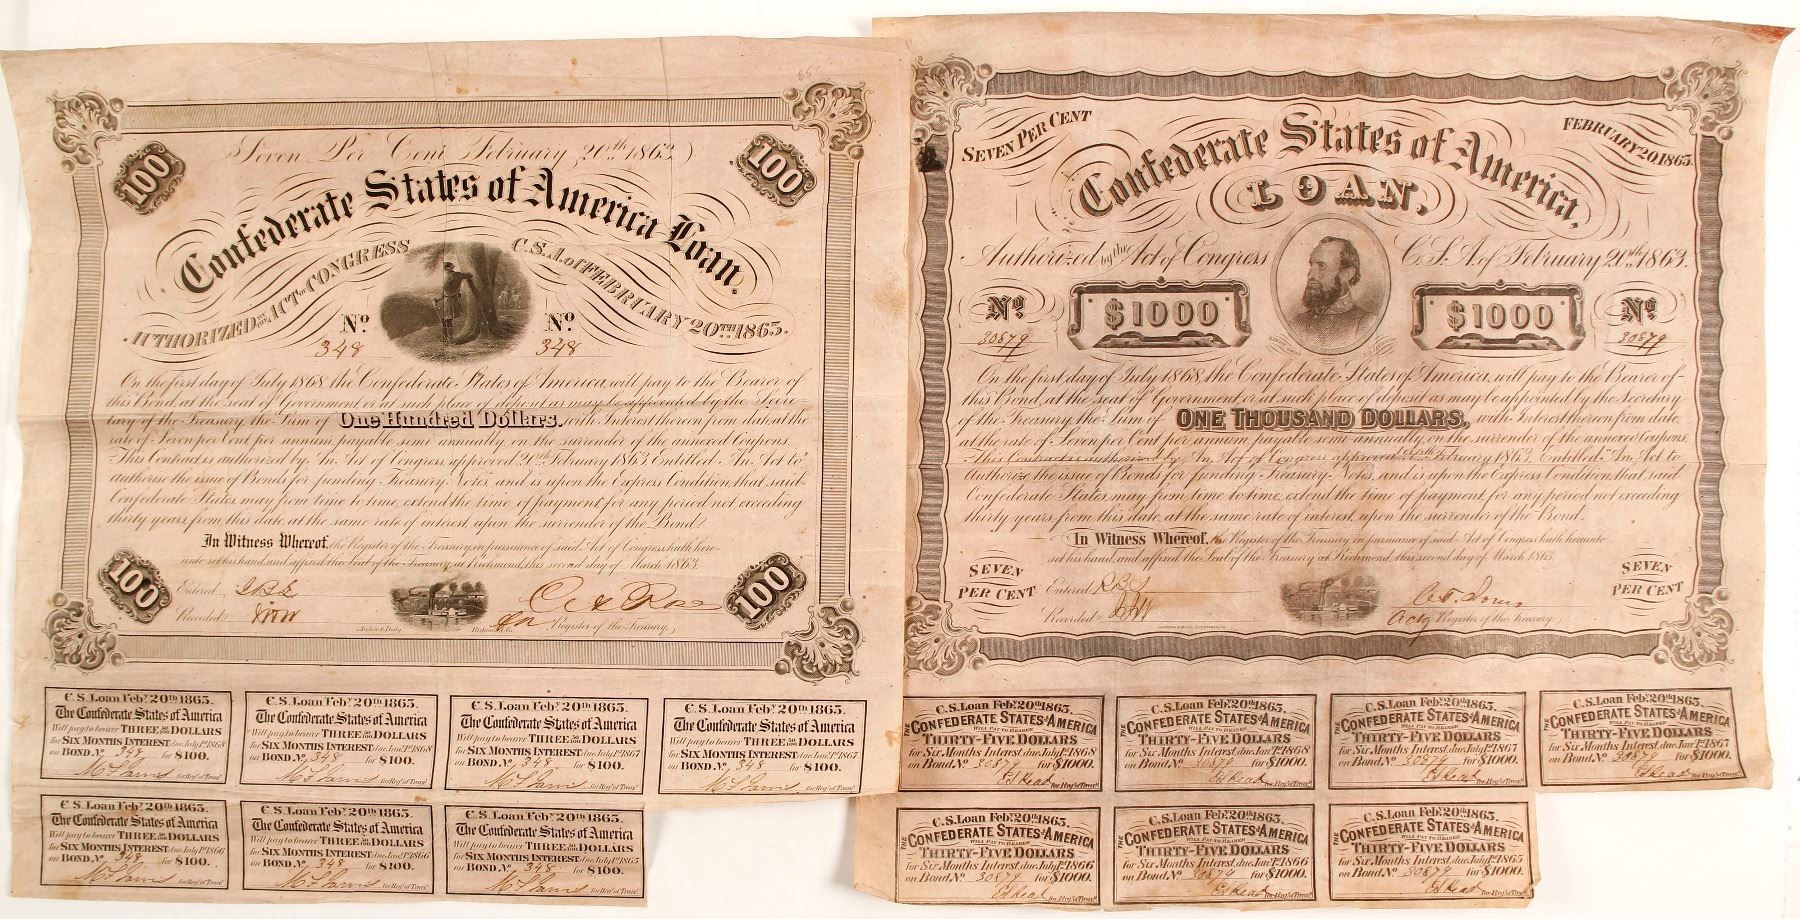 Seven Per Cent February 20th 1863
100
100
Confederate States of America Loan.
AUTHORIZED BY THE ACT OF CONGRESS C.S.A. of FEBRUARY 20TH 1863.
No No
348 348
On the first day of July 1868, the Confederate States of America, will pay to the Bearer of
this Bond, at the seat of Government or at such place of deposit as may be appointed by the Secre-
tary of the Treasury, the Sum of One Hundred Dollars. with Interest thereon from date, at the
rate of Seven per Cent per annum, payable semi annually, on the surrender of the annexed Coupons.
This Contract is authorized by An Act of Congress, approved 20th February 1863 Entitled "An Act to
authorise the issue of Bonds for funding Treasury Notes" and is upon the Express Condition that said
Confederate States may from time to time, extend the time of payment, for any period not exceeding
thirty years, from this date, at the same rate of interest, upon the surrender of the Bond.
In Witness Whereof, the Register of the Treasury, in pursuance of said Act of Congress, hath here-
unto set his hand, and affixed the Seal of the Treasury, at Richmond, this second day of March 1863.
100
100
Entered
Recorded
Archer & Daly Richmond, Va.
Register of the Treasury.
C.S. Loan Feby 20th 1863.
The Confederate States of America
Will pay to bearer THREE 50/100 DOLLARS
for SIX MONTHS INTEREST due July 1st 1868
on BOND. No 348 for $100.
for Reg'r of Treas'y
C.S. Loan Feby 20th 1863.
The Confederate States of America
Will pay to bearer THREE 50/100 DOLLARS
for SIX MONTHS INTEREST due Jany 1st 1868
on BOND. No 348 for $100.
for Reg'r of Treas'y
C.S. Loan Feby 20th 1863.
The Confederate States of America
Will pay to bearer THREE 50/100 DOLLARS
for SIX MONTHS INTEREST due July 1st 1867
on BOND. No 348 for $100.
for Reg'r of Treas'y
C.S. Loan Feby 20th 1863.
The Confederate States of America
Will pay to bearer THREE 50/100 DOLLARS
for SIX MONTHS INTEREST due Jany 1st 1867
on BOND. No 348 for $100.
for Reg'r of Treas'y
C.S. Loan Feby 20th 1863.
The Confederate States of America
Will pay to bearer THREE 50/100 DOLLARS
for SIX MONTHS INTEREST due July 1st 1866
on BOND. No 348 for $100.
for Reg'r of Treas'y
C.S. Loan Feby 20th 1863.
The Confederate States of America
Will pay to bearer THREE 50/100 DOLLARS
for SIX MONTHS INTEREST due Jany 1st 1866
on BOND. No 348 for $100.
for Reg'r of Treas'y
C.S. Loan Feby 20th 1863.
The Confederate States of America
Will pay to bearer THREE 50/100 DOLLARS
for SIX MONTHS INTEREST due July 1st 1865
on BOND. No 348 for $100.
for Reg'r of Treas'y
SEVEN PER CENT
FEBRUARY 20, 1863.
Confederate States of America
LOAN,
Authorized by the Act of Congress C.S.A. of February 20th 1863.
No $1000 $1000 No
30879 30879
On the first day of July 1868, the Confederate States of America, will pay to the Bearer of
this Bond, at the seat of Government or at such place of deposit as may be appointed by the Secretary
of the Treasury, the Sum of ONE THOUSAND DOLLARS, with Interest thereon from date,
at the rate of Seven per Cent per annum, payable semi annually, on the surrender of the annexed Coupons.
This Contract is authorized by An Act of Congress approved 20th February 1863, Entitled "An Act to
Authorize the issue of Bonds for funding Treasury Notes, and is upon the Express Condition that said
Confederate States may from time to time, extend the time of payment, for any period not exceeding
thirty years, from this date, at the same rate of interest, upon the surrender of the Bond.
In Witness Whereof, the Register of the Treasury, in pursuance of said Act of Congress, hath hereunto
set his hand, and affixed the Seal of the Treasury at Richmond, this second day of March 1863.
SEVEN
PER CENT
SEVEN
PER CENT
Entered
Recorded
Actg Register of the Treasury.
C.S. Loan Feby 20th 1863.
THE CONFEDERATE STATES of AMERICA
WILL PAY TO BEARER
THIRTY-FIVE DOLLARS
for Six Months Interest, due July 1st 1868
on Bond No 30879 for $1000.
for Reg'r of Treas'y
C.S. Loan Feby 20th 1863.
THE CONFEDERATE STATES of AMERICA
WILL PAY TO BEARER
THIRTY-FIVE DOLLARS
for Six Months Interest, due Jany 1st 1868
on Bond No 30879 for $1000.
for Reg'r of Treas'y
C.S. Loan Feby 20th 1863.
THE CONFEDERATE STATES of AMERICA
WILL PAY TO BEARER
THIRTY-FIVE DOLLARS
for Six Months Interest, due July 1st 1867
on Bond No 30879 for $1000.
for Reg'r of Treas'y
C.S. Loan Feby 20th 1863.
THE CONFEDERATE STATES of AMERICA
WILL PAY TO BEARER
THIRTY-FIVE DOLLARS
for Six Months Interest, due Jany 1st 1867
on Bond No 30879 for $1000.
for Reg'r of Treas'y
C.S. Loan Feby 20th 1863.
THE CONFEDERATE STATES of AMERICA
WILL PAY TO BEARER
THIRTY-FIVE DOLLARS
for Six Months Interest, due July 1st 1866
on Bond No 30879 for $1000.
for Reg'r of Treas'y
C.S. Loan Feby 20th 1863.
THE CONFEDERATE STATES of AMERICA
WILL PAY TO BEARER
THIRTY-FIVE DOLLARS
for Six Months Interest, due Jany 1st 1866
on Bond No 30879 for $1000.
for Reg'r of Treas'y
C.S. Loan Feby 20th 1863.
THE CONFEDERATE STATES of AMERICA
WILL PAY TO BEARER
THIRTY-FIVE DOLLARS
for Six Months Interest, due July 1st 1865
on Bond No 30879 for $1000.
for Reg'r of Treas'y